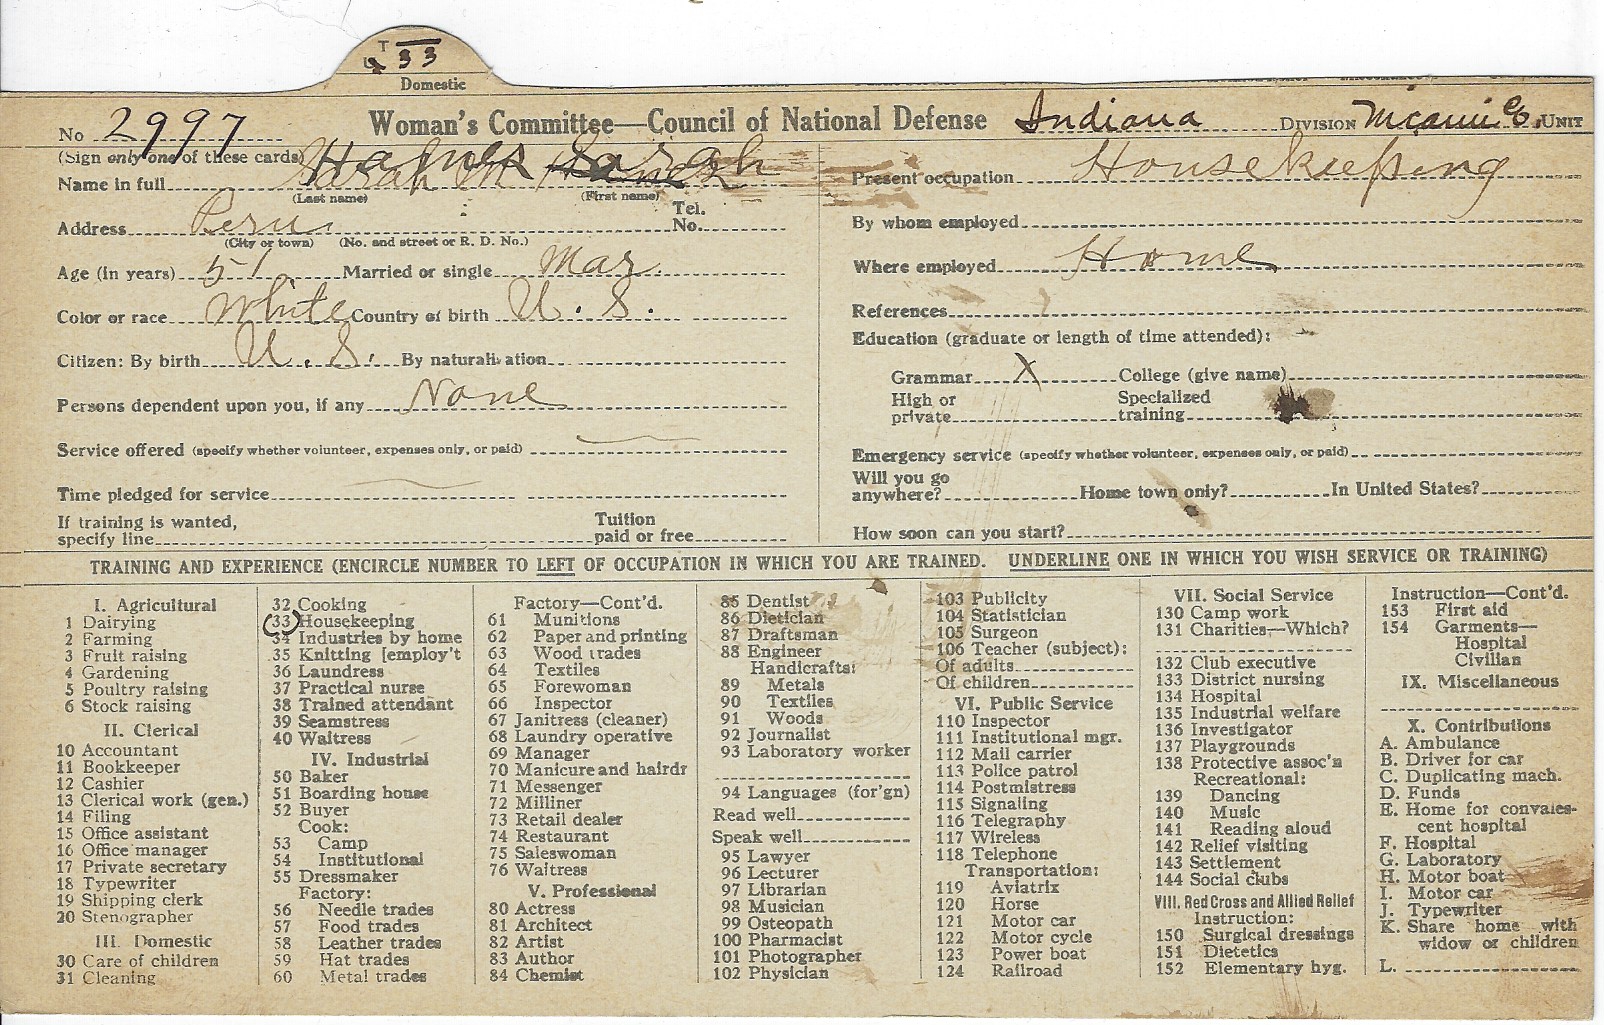 T 33
Domestic
No 2997
Woman's Committee—Council of National Defense Indiana DIVISION Miami Co. UNIT
(Sign only one of these cards)
Sarah
Name in full Sarah M
(Last name) (First name)
Address Peru Tel. No.
(City or town) (No. and street or R. D. No.)
Age (in years) 51 Married or single Mar.
Color or race White Country of birth U. S.
Citizen: By birth U. S. By naturalization
Persons dependent upon you, if any None
Service offered (specify whether volunteer, expenses only, or paid)
Time pledged for service
If training is wanted,
specify line Tuition paid or free
Present occupation Housekeeping
By whom employed
Where employed Home
References
Education (graduate or length of time attended):
Grammar X College (give name)
High or private Specialized training
Emergency service (specify whether volunteer, expenses only, or paid)
Will you go anywhere? Home town only? In United States?
How soon can you start?
TRAINING AND EXPERIENCE (ENCIRCLE NUMBER TO LEFT OF OCCUPATION IN WHICH YOU ARE TRAINED. UNDERLINE ONE IN WHICH YOU WISH SERVICE OR TRAINING)
I. Agricultural
1 Dairying
2 Farming
3 Fruit raising
4 Gardening
5 Poultry raising
6 Stock raising
II. Clerical
10 Accountant
11 Bookkeeper
12 Cashier
13 Clerical work (gen.)
14 Filing
15 Office assistant
16 Office manager
17 Private secretary
18 Typewriter
19 Shipping clerk
20 Stenographer
III. Domestic
30 Care of children
31 Cleaning
32 Cooking
33 Housekeeping
34 Industries by home
35 Knitting [employ't
36 Laundress
37 Practical nurse
38 Trained attendant
39 Seamstress
40 Waitress
IV. Industrial
50 Baker
51 Boarding house
52 Buyer
Cook:
53 Camp
54 Institutional
55 Dressmaker
Factory:
56 Needle trades
57 Food trades
58 Leather trades
59 Hat trades
60 Metal trades
Factory—Cont'd.
61 Munitions
62 Paper and printing
63 Wood trades
64 Textiles
65 Forewoman
66 Inspector
67 Janitress (cleaner)
68 Laundry operative
69 Manager
70 Manicure and hairdr
71 Messenger
72 Milliner
73 Retail dealer
74 Restaurant
75 Saleswoman
76 Waitress
V. Professional
80 Actress
81 Architect
82 Artist
83 Author
84 Chemist
85 Dentist
86 Dietician
87 Draftsman
88 Engineer
Handicrafts:
89 Metals
90 Textiles
91 Woods
92 Journalist
93 Laboratory worker
94 Languages (for'gn)
Read well
Speak well
95 Lawyer
96 Lecturer
97 Librarian
98 Musician
99 Osteopath
100 Pharmacist
101 Photographer
102 Physician
103 Publicity
104 Statistician
105 Surgeon
106 Teacher (subject):
Of adults
Of children
VI. Public Service
110 Inspector
111 Institutional mgr.
112 Mail carrier
113 Police patrol
114 Postmistress
115 Signaling
116 Telegraphy
117 Wireless
118 Telephone
Transportation:
119 Aviatrix
120 Horse
121 Motor car
122 Motor cycle
123 Power boat
124 Railroad
VII. Social Service
130 Camp work
131 Charities—Which?
132 Club executive
133 District nursing
134 Hospital
135 Industrial welfare
136 Investigator
137 Playgrounds
138 Protective assoc'n
Recreational:
139 Dancing
140 Music
141 Reading aloud
142 Relief visiting
143 Settlement
144 Social clubs
VIII. Red Cross and Allied Relief
Instruction:
150 Surgical dressings
151 Dietetics
152 Elementary hyg.
Instruction—Cont'd.
153 First aid
154 Garments—
Hospital
Civilian
IX. Miscellaneous
X. Contributions
A. Ambulance
B. Driver for car
C. Duplicating mach.
D. Funds
E. Home for convales-
cent hospital
F. Hospital
G. Laboratory
H. Motor boat
I. Motor car
J. Typewriter
K. Share home with
widow or children
L.